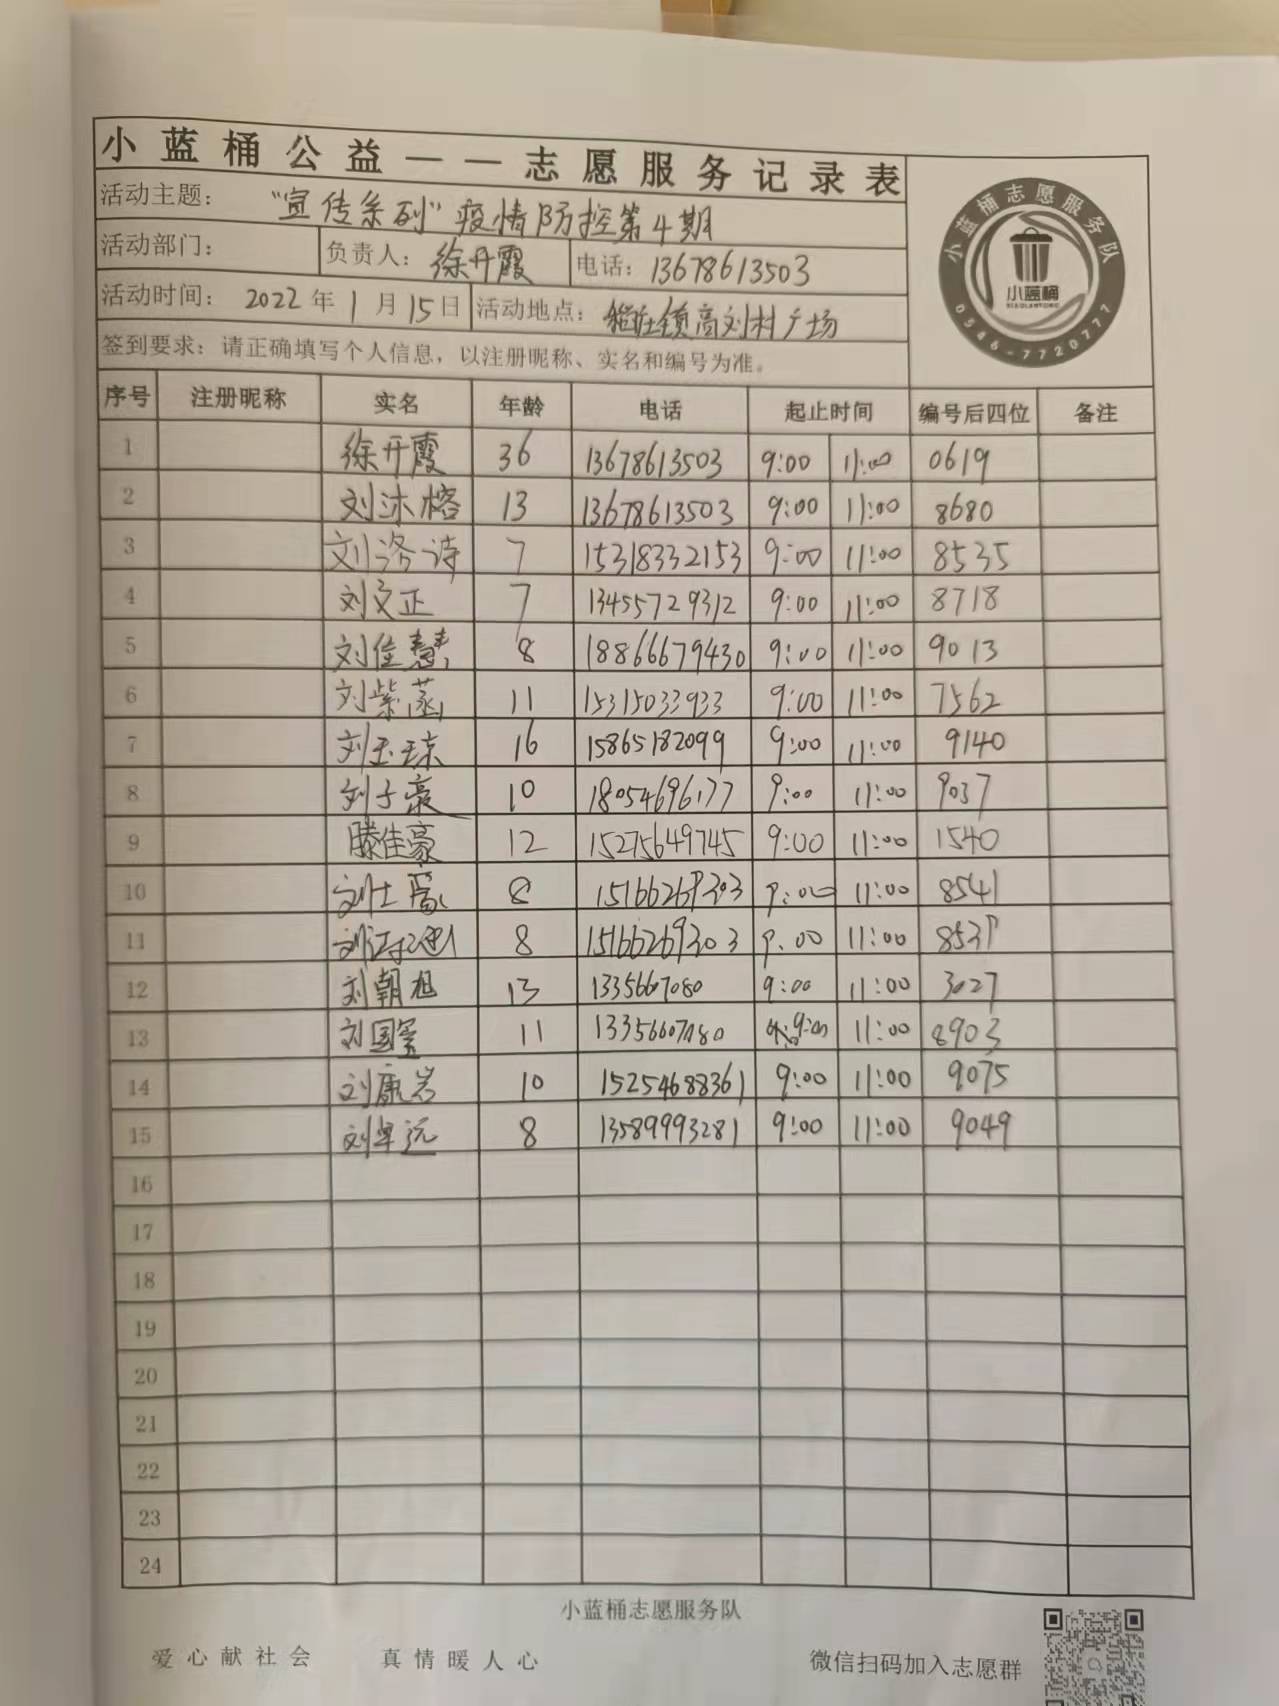 小蓝桶公益——志愿服务记录表
活动主题： "宣传系列"疫情防控第4期
活动部门： 负责人：徐开霞 电话：13678613503
活动时间：2022年1月15日 活动地点：稻庄镇高刘村广场
签到要求：请正确填写个人信息，以注册昵称、实名和编号为准。
小蓝桶志愿服务队
小蓝桶
XIAOLANTONG
0546-7720777
序号 注册昵称 实名 年龄 电话 起止时间 编号后四位 备注
1 徐开霞 36 13678613503 9:00 11:00 0619
2 刘沐榕 13 13678613503 9:00 11:00 8680
3 刘洛诗 7 15318332153 9:00 11:00 8535
4 刘文正 7 13455729312 9:00 11:00 8718
5 刘佳慧 8 18866679430 9:00 11:00 9013
6 刘紫菡 11 15315033933 9:00 11:00 7562
7 刘玉琼 16 15865182099 9:00 11:00 9140
8 刘子豪 10 18054696177 9:00 11:00 9037
9 滕佳豪 12 15275649745 9:00 11:00 1540
10 刘士 8 15166269303 9:00 11:00 8541
11 刘 8 15166269303 9:00 11:00 8539
12 刘朝旭 13 13356607080 9:00 11:00 3027
13 刘国玺 11 13356607080 9:00 11:00 8903
14 刘康岩 10 15254688361 9:00 11:00 9075
15 刘卓远 8 13589993281 9:00 11:00 9049
16
17
18
19
20
21
22
23
24
小蓝桶志愿服务队
爱心献社会 真情暖人心 微信扫码加入志愿群